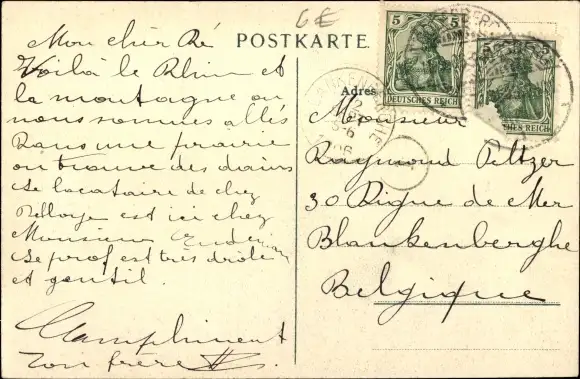 6E
Mon cher Ré
Voilà le Rhin et
la montagne ou
nous sommes allés
Dans une prairie
on trouve des dains
Le locataire de chez
est ici chez
Monsieur
Le prof est très drôle
et gentil.
Compliment
Ton frère
POSTKARTE.
5 5
DEUTSCHES REICH
CHES REICH
BLANKENBERGHE
Monsieur
Raymond Peltzer
30 Digue de Mer
Blankenberghe
Belgique